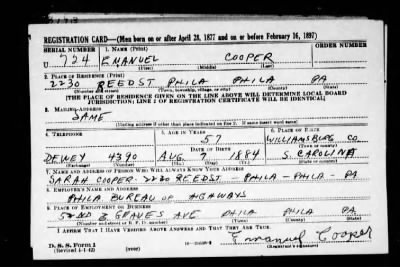 REGISTRATION CARD—(Men born on or after April 28, 1877 and on or before February 16, 1897)
SERIAL NUMBER 1. NAME (Print) ORDER NUMBER
U 724 EMANUEL COOPER
(First) (Middle) (Last)
2. PLACE OF RESIDENCE (Print)
2230 REED ST PHILA PHILA PA
(Number and street) (Town, township, village, or city) (County) (State)
[THE PLACE OF RESIDENCE GIVEN ON THE LINE ABOVE WILL DETERMINE LOCAL BOARD
JURISDICTION; LINE 2 OF REGISTRATION CERTIFICATE WILL BE IDENTICAL]
3. MAILING ADDRESS
SAME
[Mailing address if other than place indicated on line 2. If same insert word same]
4. TELEPHONE 5. AGE IN YEARS 6. PLACE OF BIRTH
57 WILLIAMSBURG CO.
DATE OF BIRTH (Town or county)
DEWEY 4390 AUG 7 1884 S. CAROLINA
(Exchange) (Number) (Mo.) (Day) (Yr.) (State or country)
7. NAME AND ADDRESS OF PERSON WHO WILL ALWAYS KNOW YOUR ADDRESS
SARAH COOPER - 2230 REED ST. PHILA - PHILA - PA
8. EMPLOYER'S NAME AND ADDRESS
PHILA BUREAU OF HIGHWAYS
9. PLACE OF EMPLOYMENT OR BUSINESS
52ND & GRAVES AVE PHILA PHILA PA
(Number and street or R. F. D. number) (Town) (County) (State)
I AFFIRM THAT I HAVE VERIFIED ABOVE ANSWERS AND THAT THEY ARE TRUE.
D. S. S. Form 1
(Revised 4-1-42) (over) Emanuel Cooper